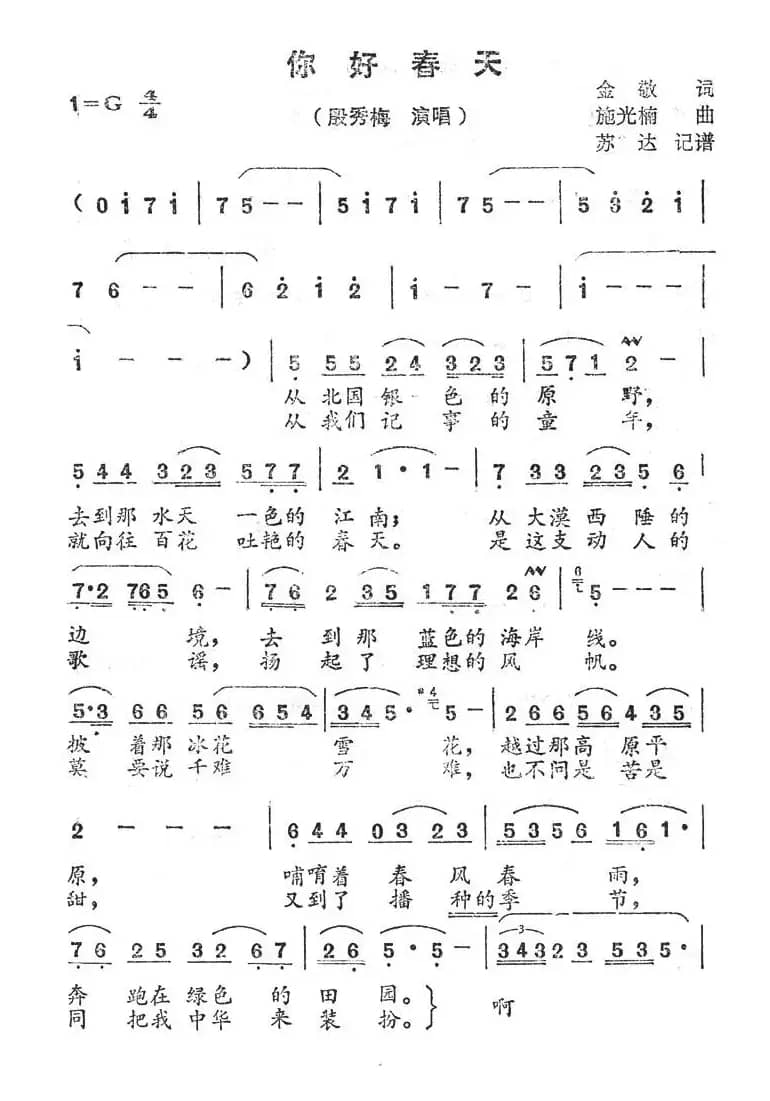 你好春天
1=G 4/4
（殷秀梅 演唱）
金敬 词
施光楠 曲
苏达 记谱
（0 i 7 i | 7 5 - - | 5 i 7 i | 7 5 - - | 5 3 2 i |
7 6 - - | 6 2 i 2 | i - 7 - | i - - - |
i - - - ） | 5 55 24 323 | 571 2 - |
从北国银色的原野，
从我们记事的童年，
544 323 577 | 2 1·1 - | 7 33 235 6 |
去到那水天一色的江南；从大漠西陲的
就向往百花吐艳的春天。是这支动人的
7·2 765 6 - | 76 2 35 177 26 | 5 - - |
边境，去到那蓝色的海岸线。
歌谣，扬起了理想的风帆。
5·3 66 56 654 | 345· 5 - | 266 56 4 35 |
披着那冰花雪花，越过那高原平
莫要说千难万难，也不问是苦是
2 - - - | 644 03 23 | 5356 161· |
原，哺唷着春风春雨，
甜，又到了播种的季节，
76 25 32 67 | 26 5·5 - | 34323 535· |
奔跑在绿色的田园。
同把我中华来装扮。
啊